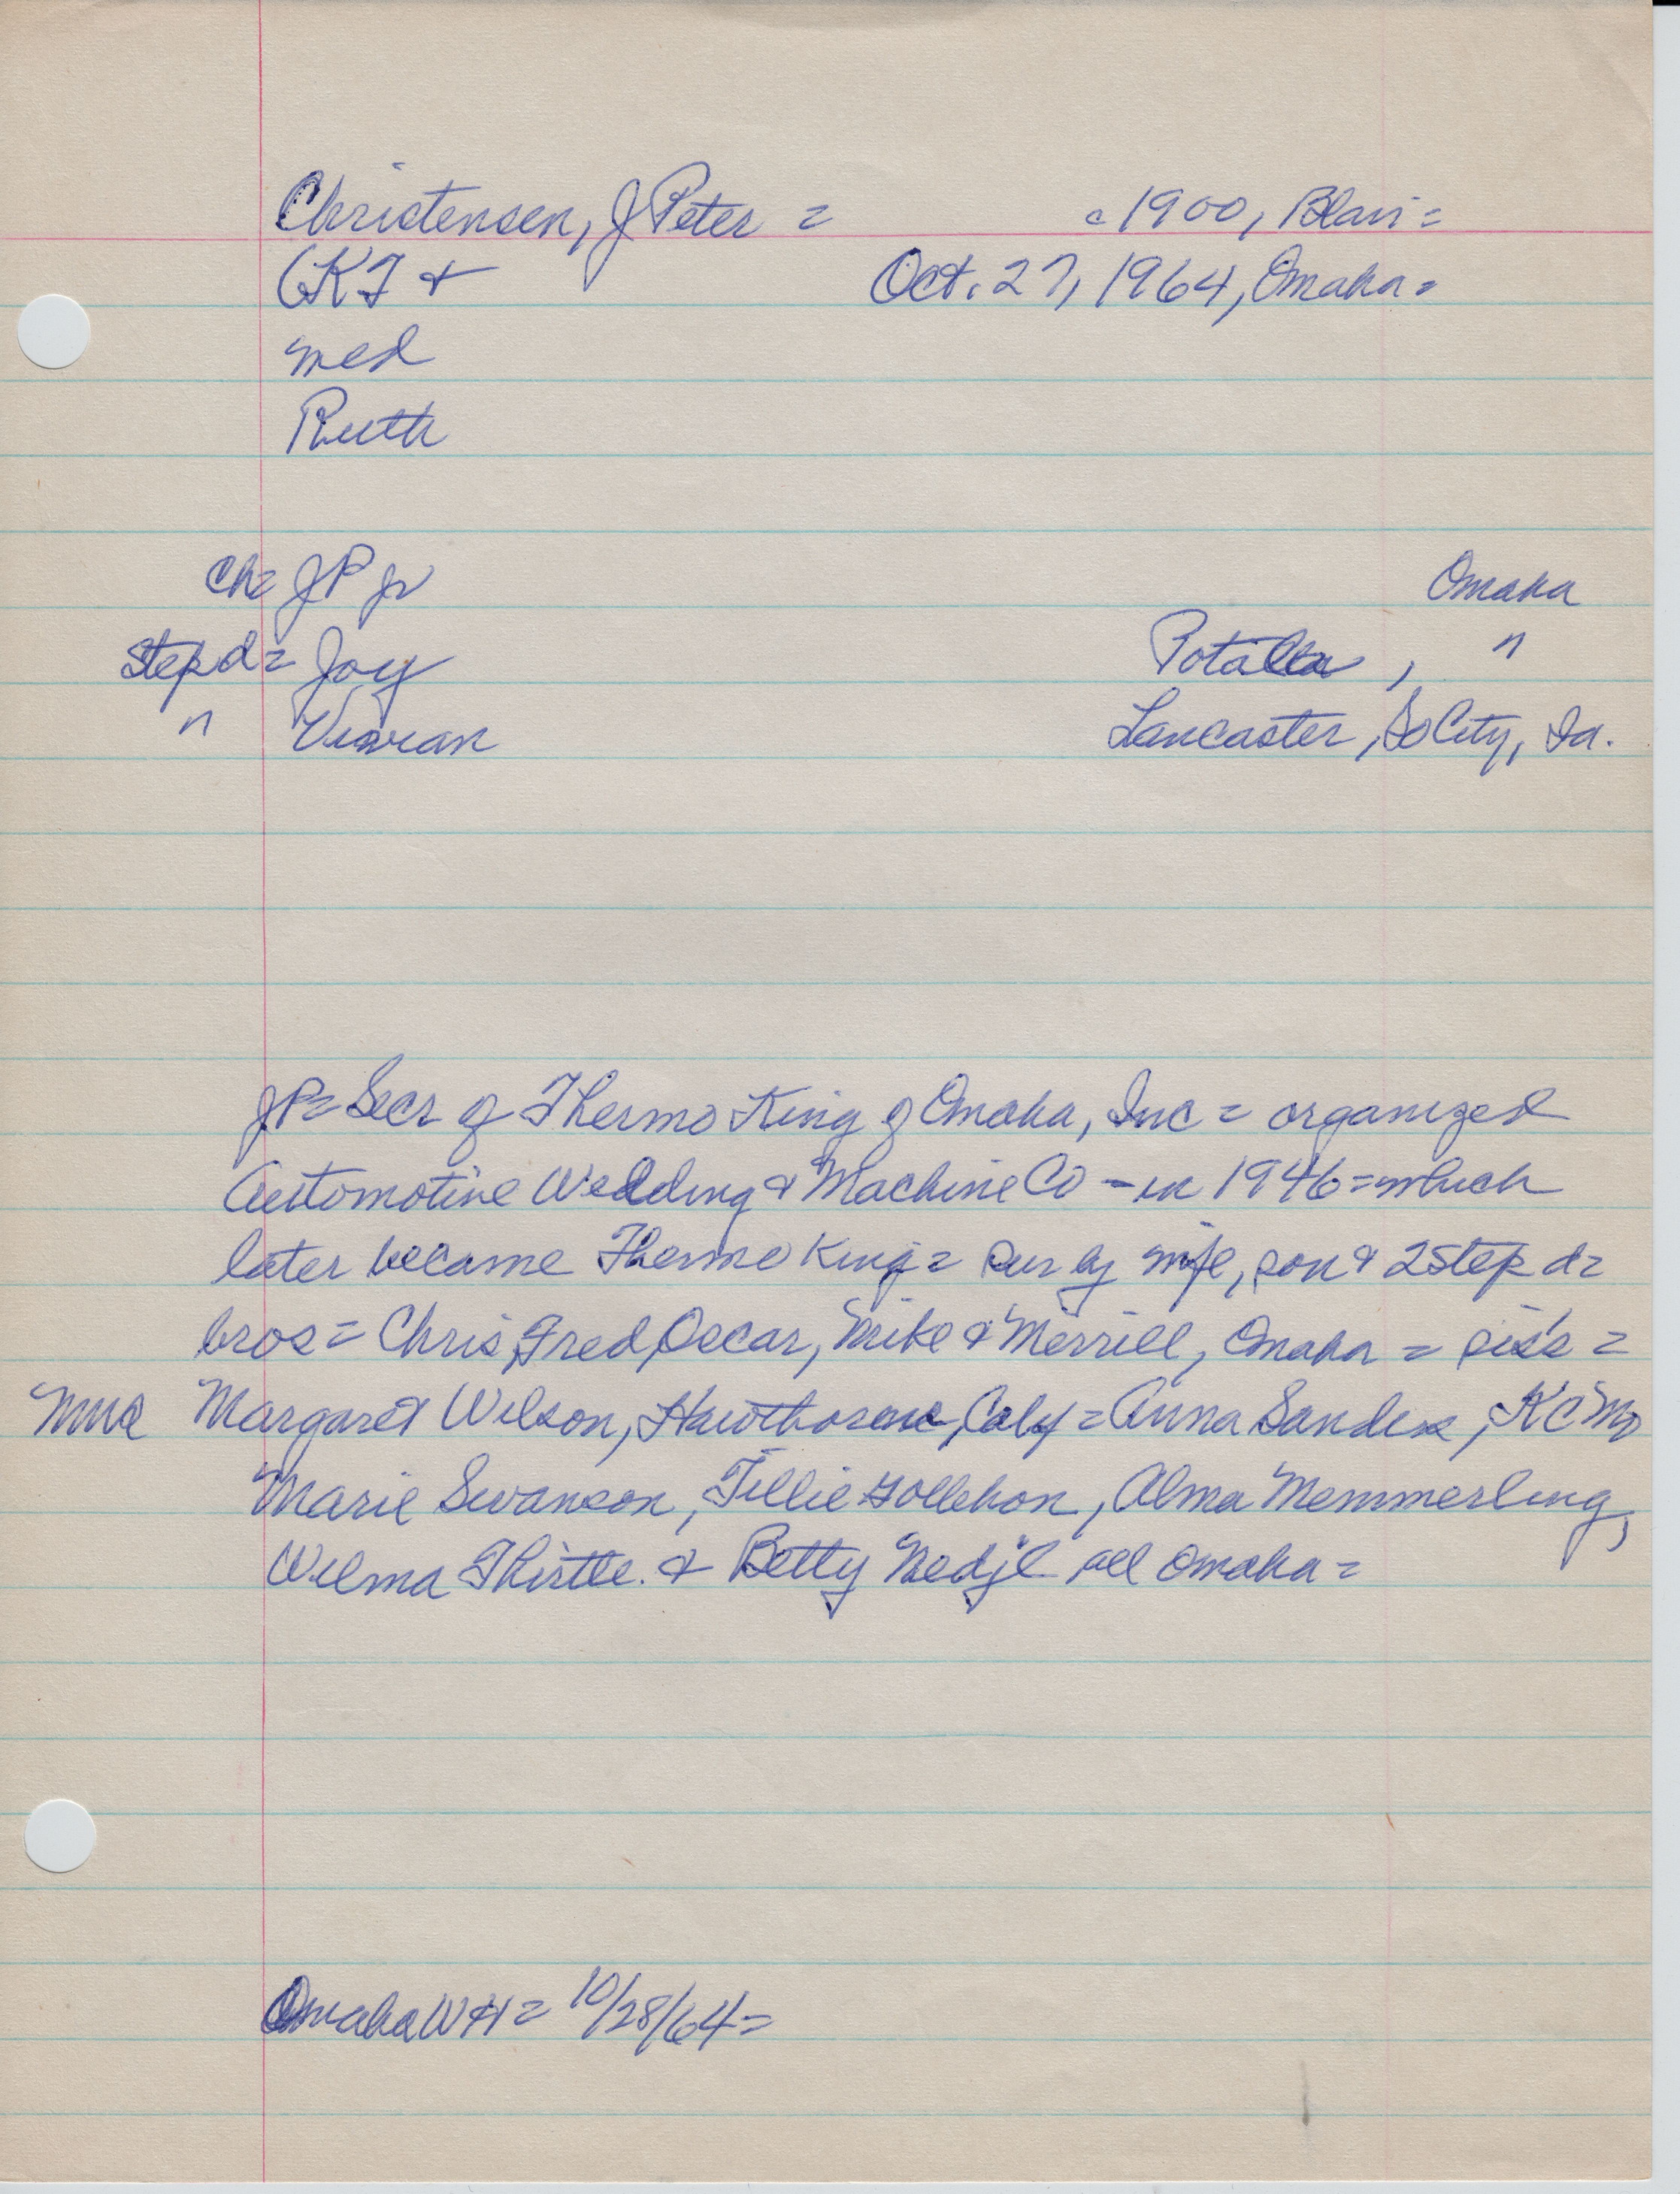 Christensen, J Peter = c 1900, Blair =
(KJ & Oct. 27, 1964, Omaha =
med
Ruth
Ch = J P Jr Omaha
Step d = Joy , "
" Vivian Lancaster, So City, Ia.
JP = Secr of Thermo King of Omaha, Inc = organized
Automotive Welding & Machine Co - in 1946 = which
later became Thermo King = sur by wife, son & 2 step d =
bros = Chris, Fred, Oscar, Mike & Merrill, Omaha = sis's =
Mmes Margaret Wilson, Hawthorne, Calif = Anna Sanders, KC Mo
Marie Swanson, Tillie Gollehon, Alma Memmerling,
Wilma Thistle. & Betty Nedjl all Omaha =
Omaha WH = 10/28/64 =